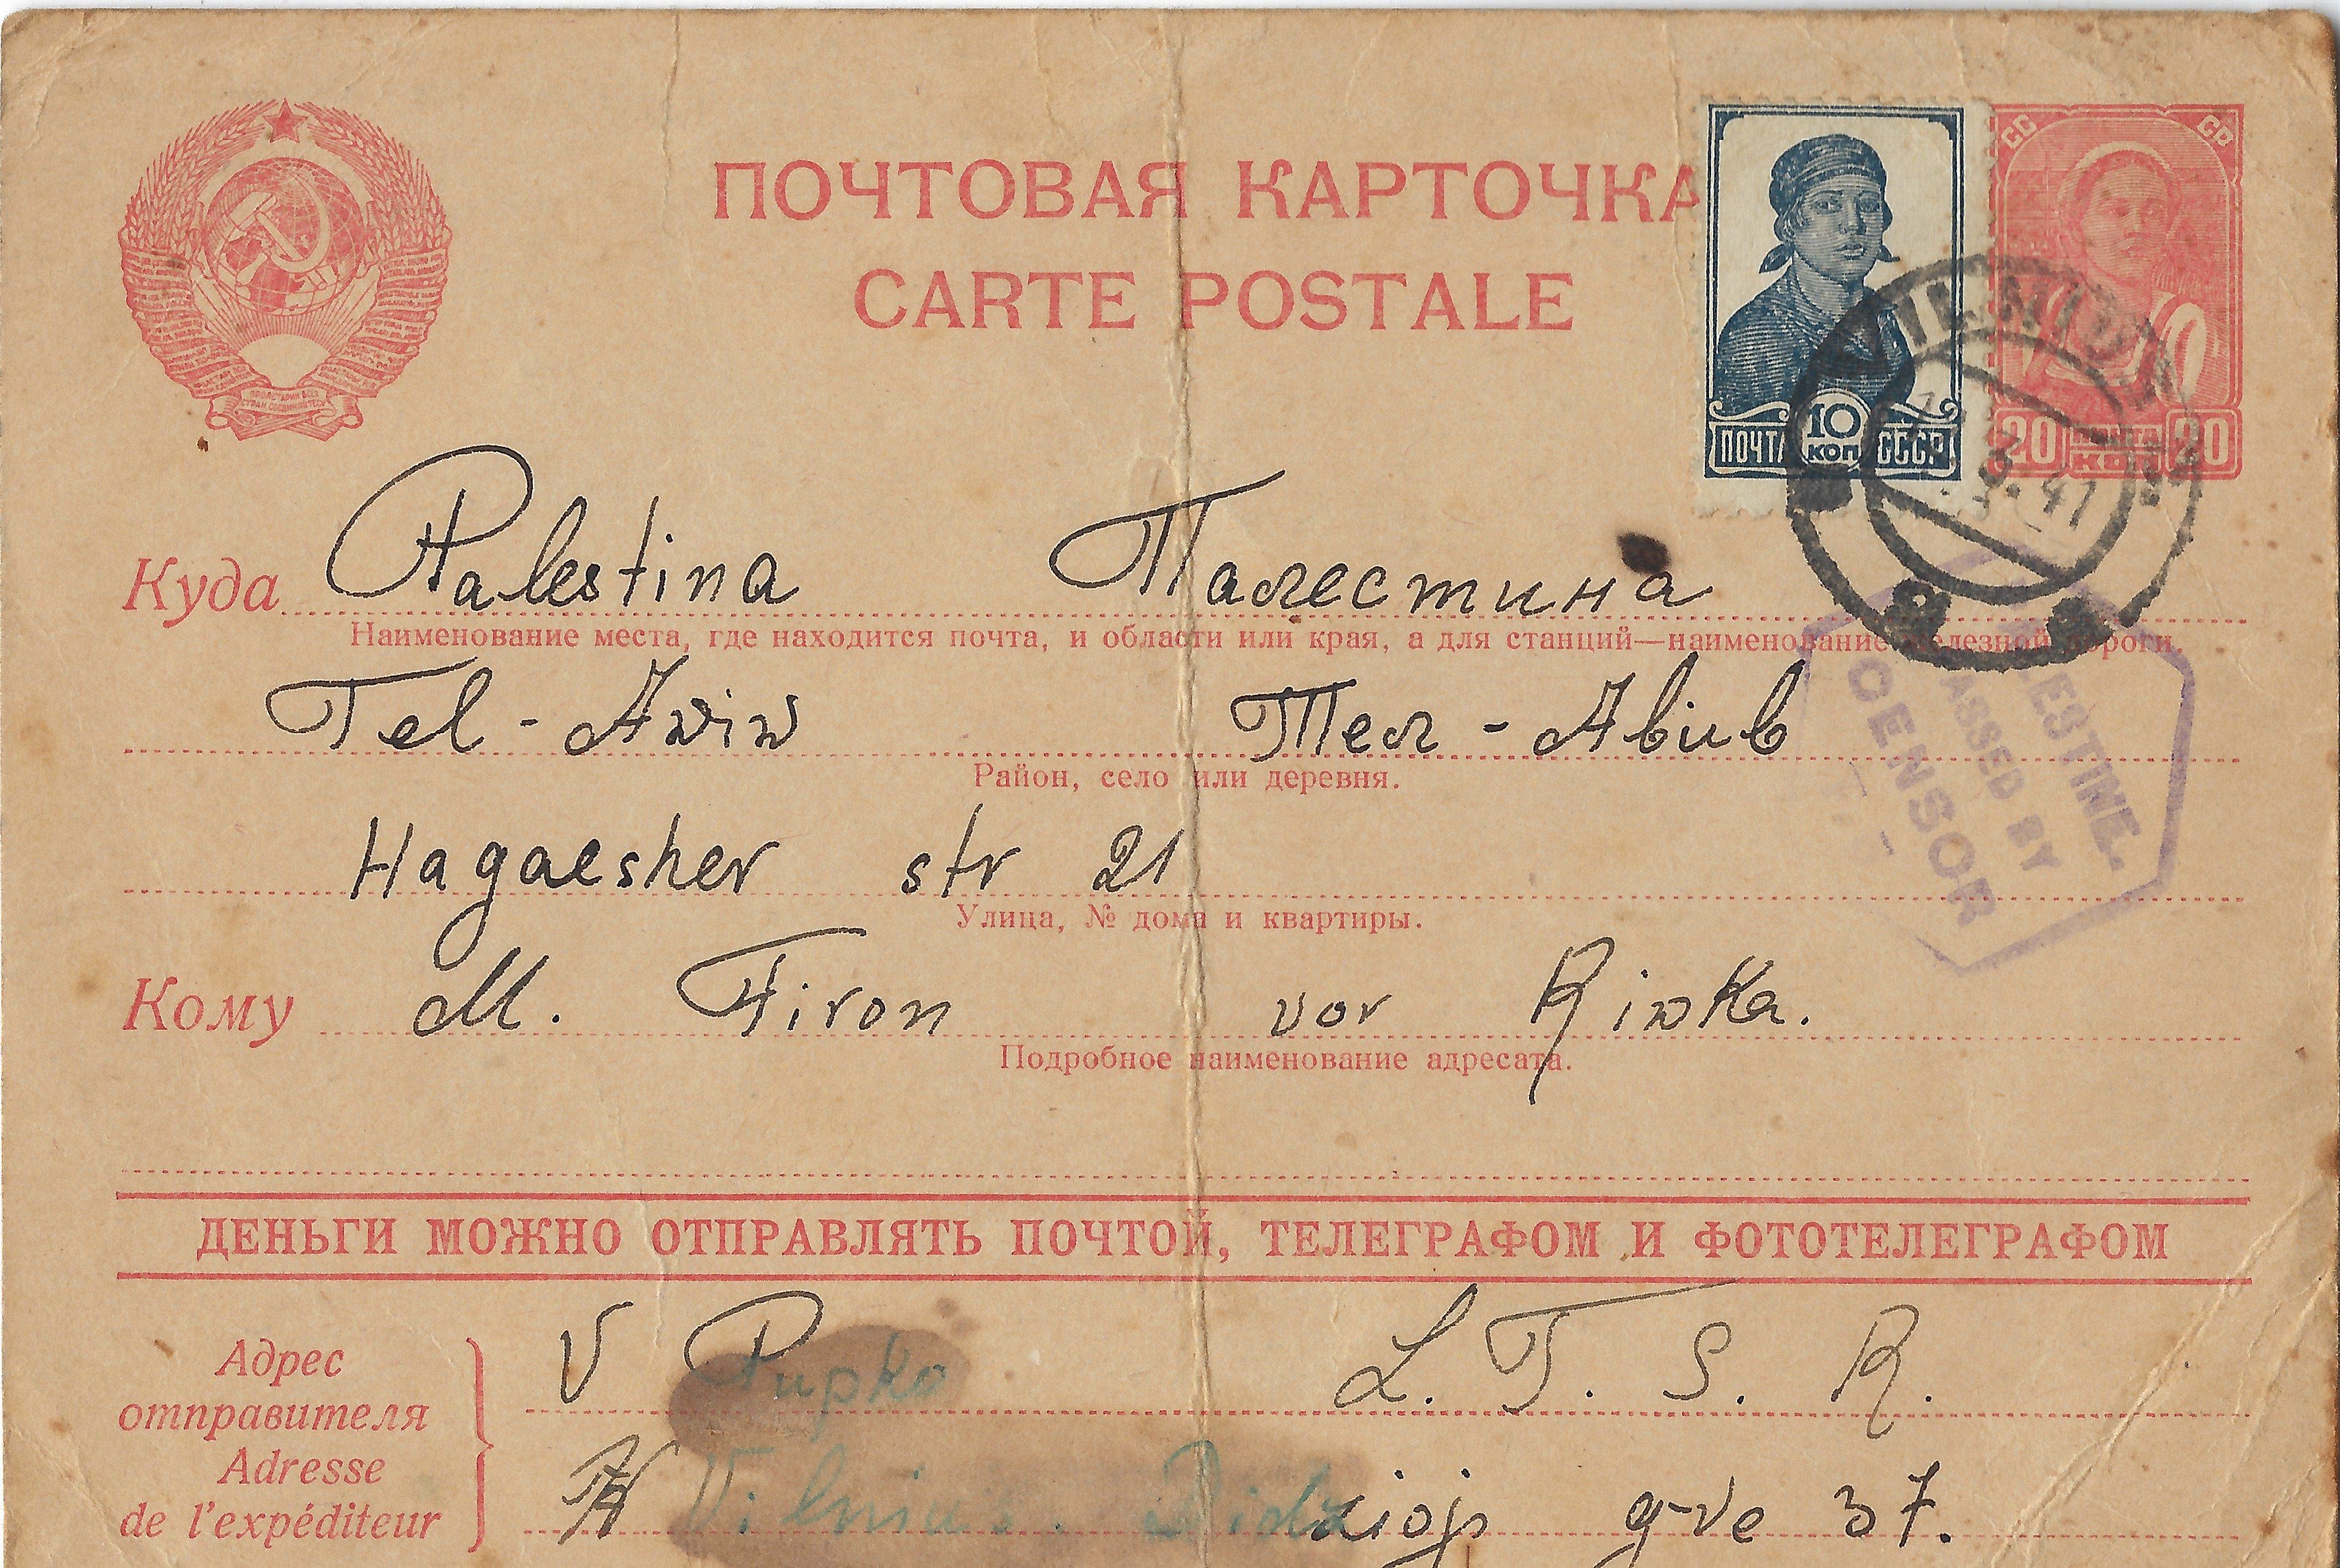 ПРОЛЕТАРИИ ВСЕХ СТРАН СОЕДИНЯЙТЕСЬ
ПОЧТОВАЯ КАРТОЧКА
CARTE POSTALE
10 КОП
ПОЧТА СССР
СС СР
20 ПОЧТА КОП 20
VILNIUS
3.41
Куда Palestina Палестина
Наименование места, где находится почта, и области или края, а для станций—наименование железной дороги.
Tel-Awiw Тел-Авив
Район, село или деревня.
PALESTINE.
PASSED BY
CENSOR
Hagaesher str 21
Улица, № дома и квартиры.
Кому M. Firon vor Riwka.
Подробное наименование адресата.
ДЕНЬГИ МОЖНО ОТПРАВЛЯТЬ ПОЧТОЙ, ТЕЛЕГРАФОМ И ФОТОТЕЛЕГРАФОМ
Адрес
отправителя
Adresse
de l'expéditeur
V Pupko L.T.S.R.
Vilnius. Didzioji g-ve 37.